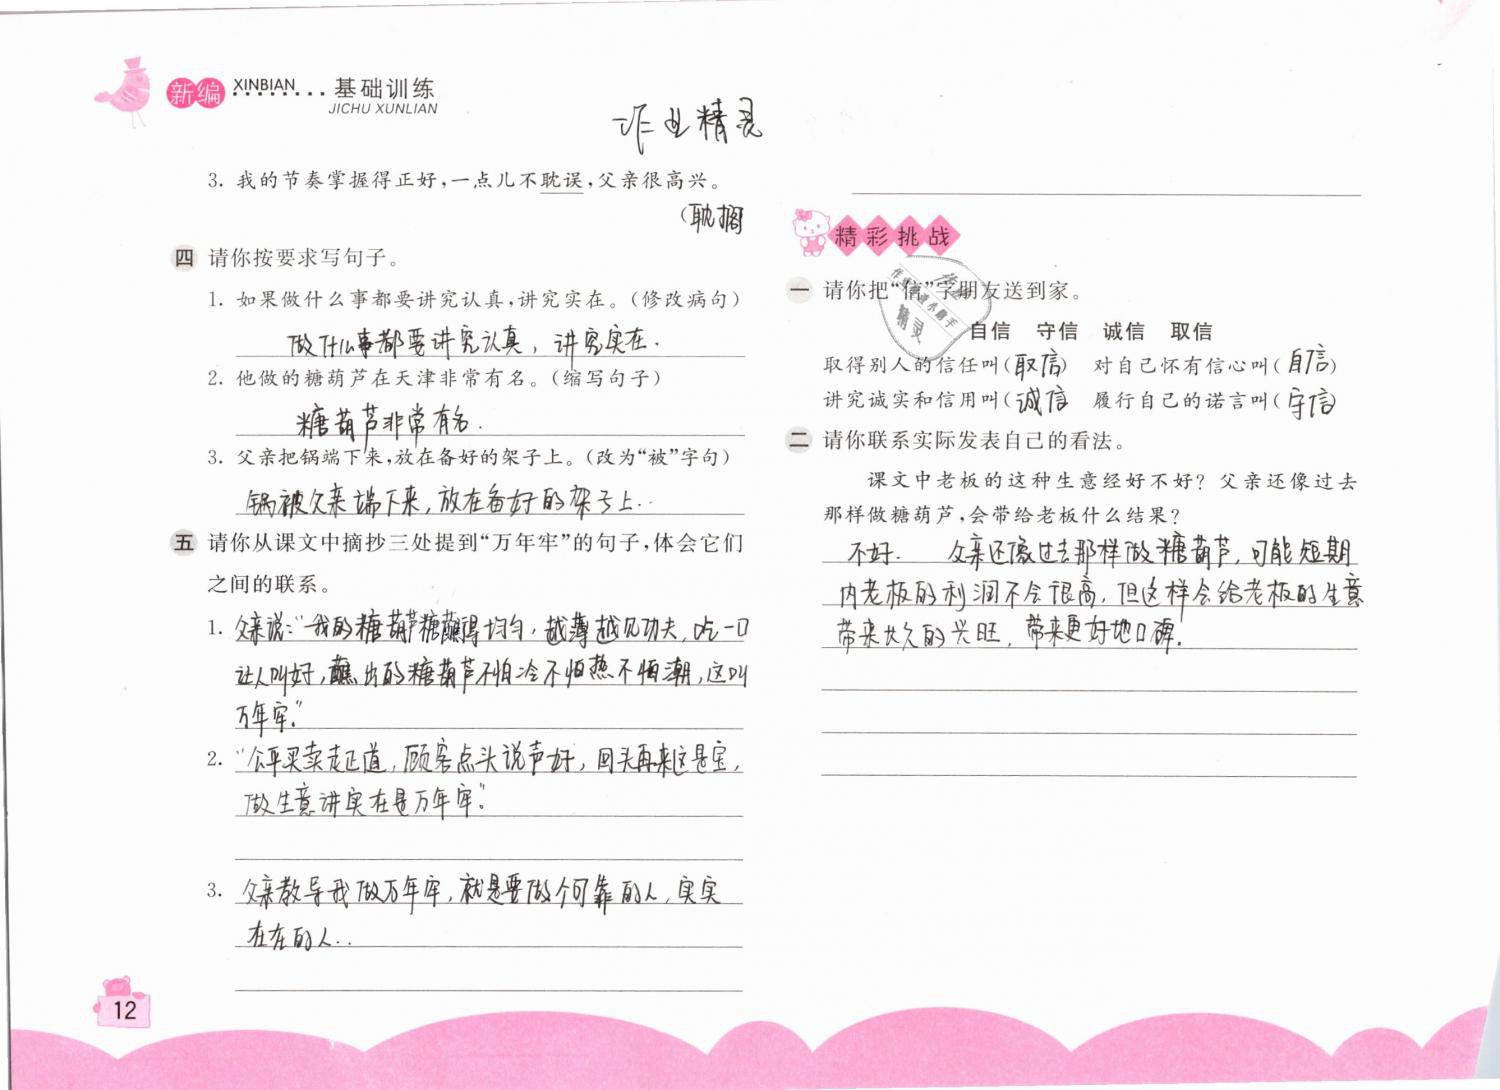 新编
XINBIAN
基础训练
JICHU XUNLIAN
作业精灵
3. 我的节奏掌握得正好,一点儿不耽误,父亲很高兴。
(耽搁
四 请你按要求写句子。
1. 如果做什么事都要讲究认真,讲究实在。(修改病句)
做什么事都要讲究认真，讲究实在.
2. 他做的糖葫芦在天津非常有名。(缩写句子)
糖葫芦非常有名.
3. 父亲把锅端下来,放在备好的架子上。(改为“被”字句)
锅被父亲端下来，放在备好的架子上..
五 请你从课文中摘抄三处提到“万年牢”的句子,体会它们
之间的联系。
1. 父亲说:“我的糖葫芦糖蘸得均匀，越薄越见功夫,吃一口
让人叫好,蘸出的糖葫芦不怕冷不怕热不怕潮,这叫
万年牢.”
2. “公平买卖走正道,顾客点头说声好,回头再来这是宝,
做生意讲实在是万年牢.”
3. 父亲教导我做万年牢,就是要做个可靠的人,实实
在在的人..
12
精彩挑战
一 请你把“信”字朋友送到家。
作业
精灵
自信 守信 诚信 取信
取得别人的信任叫(取信) 对自己怀有信心叫(自信)
讲究诚实和信用叫(诚信 履行自己的诺言叫(守信)
二 请你联系实际发表自己的看法。
课文中老板的这种生意经好不好? 父亲还像过去
那样做糖葫芦,会带给老板什么结果?
不好. 父亲还像过去那样做糖葫芦,可能短期
内老板的利润不会很高,但这样会给老板的生意
带来长久的兴旺,带来更好地口碑.